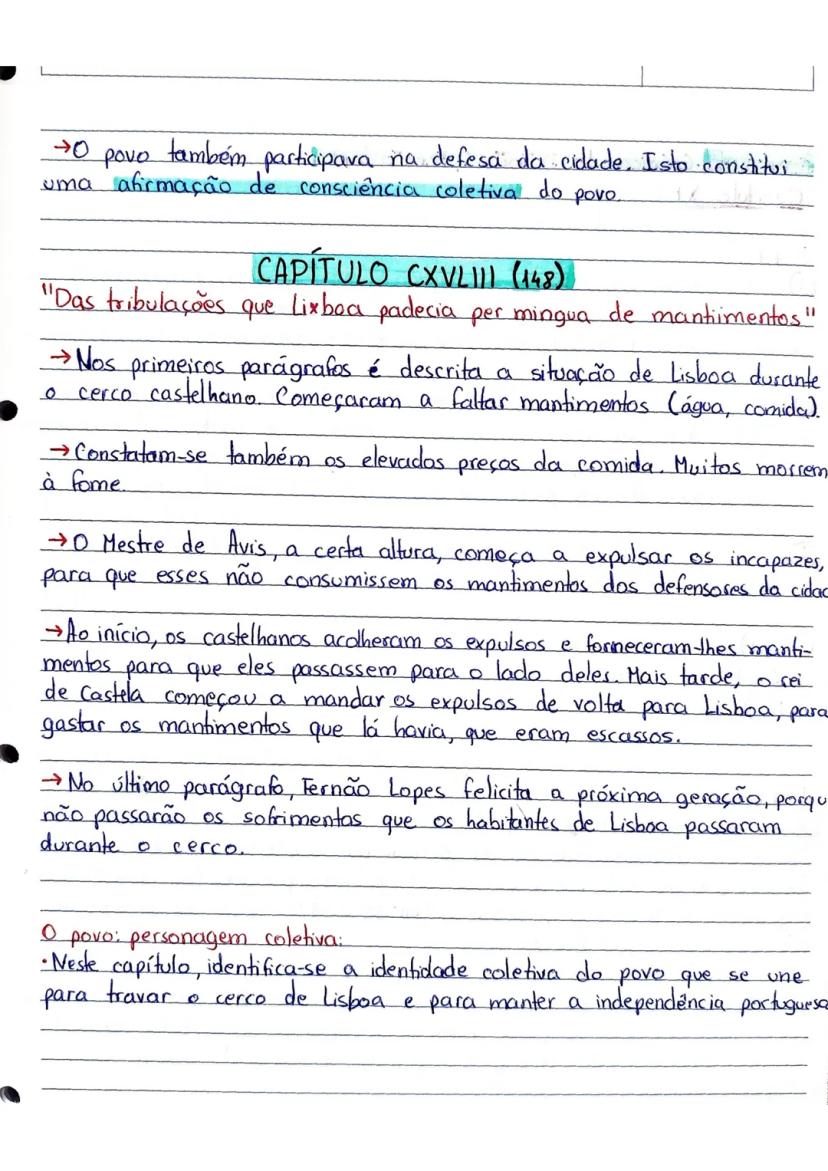 →O povo também participava na defesa da cidade. Isto constitui
uma afirmação de consciência coletiva do povo.
CAPÍTULO CXVLIII (148)
"Das tribulações que Lixboa padecia per mingua de mantiimentos"
→Nos primeiros parágrafos é descrita a situação de Lisboa durante
o cerco castelhano. Começaram a faltar mantimentos (água, comida).
→Constatam-se também os elevados preços da comida. Muitos morrem
à fome.
→O Mestre de Avis, a certa altura, começa a expulsar os incapazes,
para que esses não consumissem os mantimentos dos defensores da cidad
→Ao início, os castelhanos acolheram os expulsos e forneceram-lhes manti-
mentos para que eles passassem para o lado deles. Mais tarde, o rei
de Castela começou a mandar os expulsos de volta para Lisboa, para
gastar os mantimentos que lá havia, que eram escassos.
→No último parágrafo, Fernão Lopes felicita a próxima geração, porqu
não passarão os sofrimentos que os habitantes de Lisboa passaram
durante o cerco.
O povo: personagem coletiva:
•Neste capítulo, identifica-se a identidade coletiva do povo que se une
para travar o cerco de Lisboa e para manter a independência portuguesa